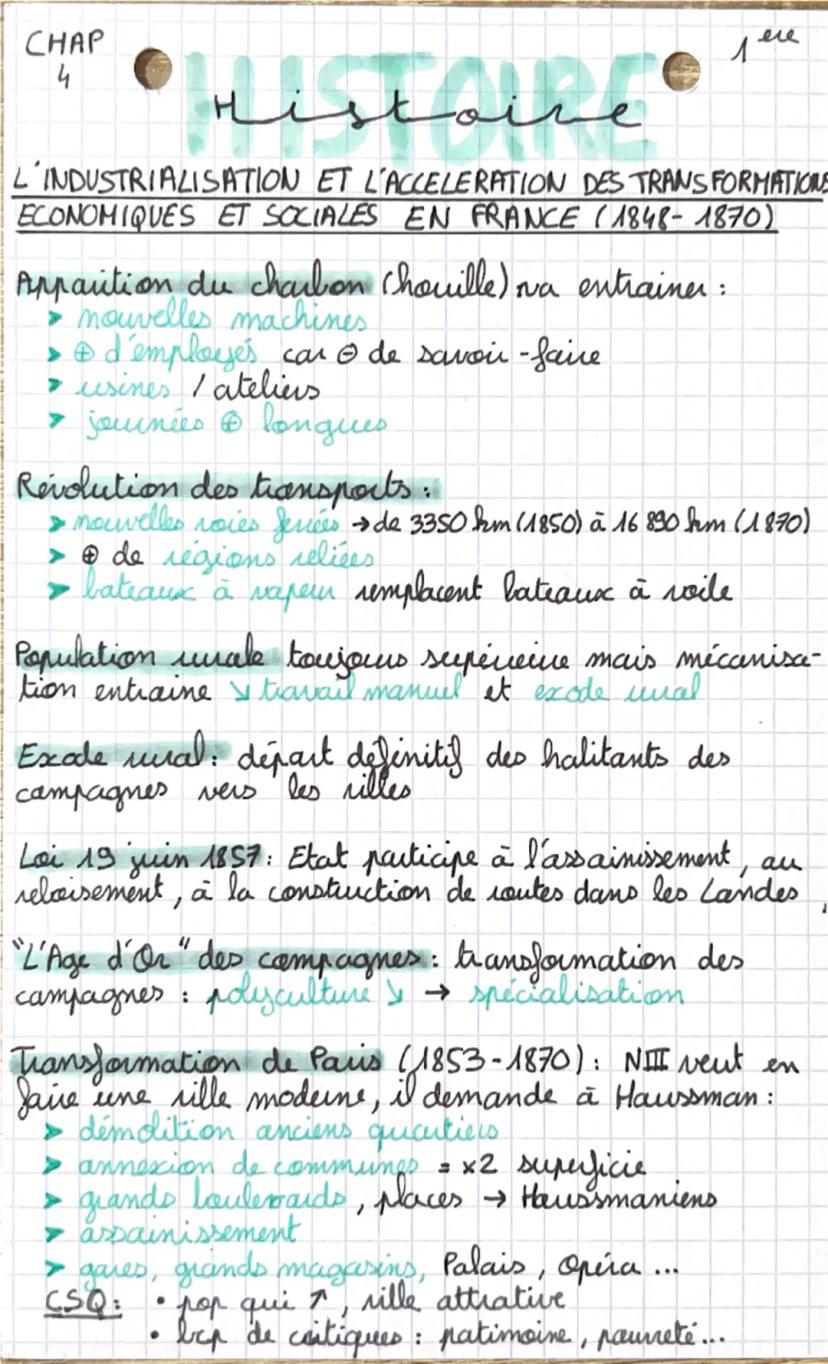 CHAP
4
1ere
HISTOIRE
Histoire
L'INDUSTRIALISATION ET L'ACCELERATION DES TRANSFORMATIONS
ECONOMIQUES ET SOCIALES EN FRANCE (1848-1870)
Apparition du charbon (houille) va entrainer :
➤ nouvelles machines
➤ ⊕ d'employés car ⊖ de savoir-faire
➤ usines / ateliers
➤ journées ⊕ longues
Révolution des transports :
➤ nouvelles voies ferrées → de 3350 km (1850) à 16 890 km (1870)
➤ ⊕ de régions reliées
➤ bateaux à vapeur remplacent bateaux à voile
Population rurale toujours supérieure mais mécanisa-
tion entraine ↘ travail manuel et exode rural
Exode rural : départ définitif des habitants des
campagnes vers les villes
Loi 19 juin 1857 : Etat participe à l'assainissement, au
reboisement, à la construction de routes dans les Landes,
"L'Age d'Or" des campagnes : transformation des
campagnes : polyculture ↘ → spécialisation
Transformation de Paris (1853-1870) : NIII veut en
faire une ville moderne, il demande à Haussman :
➤ démolition anciens quartiers
➤ annexion de communes = x2 superficie
➤ grands boulevards, places → Haussmaniens
➤ assainissement
➤ gares, grands magasins, Palais, Opéra ...
CSQ : • pop qui ↗, ville attrative
• bcp de critiques : patimoine, pauvreté...